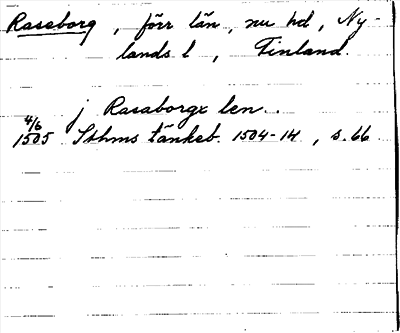 Raseborg, förr län, nu hd, Ny-
lands l, Finland.
j Rasaborgx len.
4/6
1505 Sthms tänkeb. 1504-14, s. 66